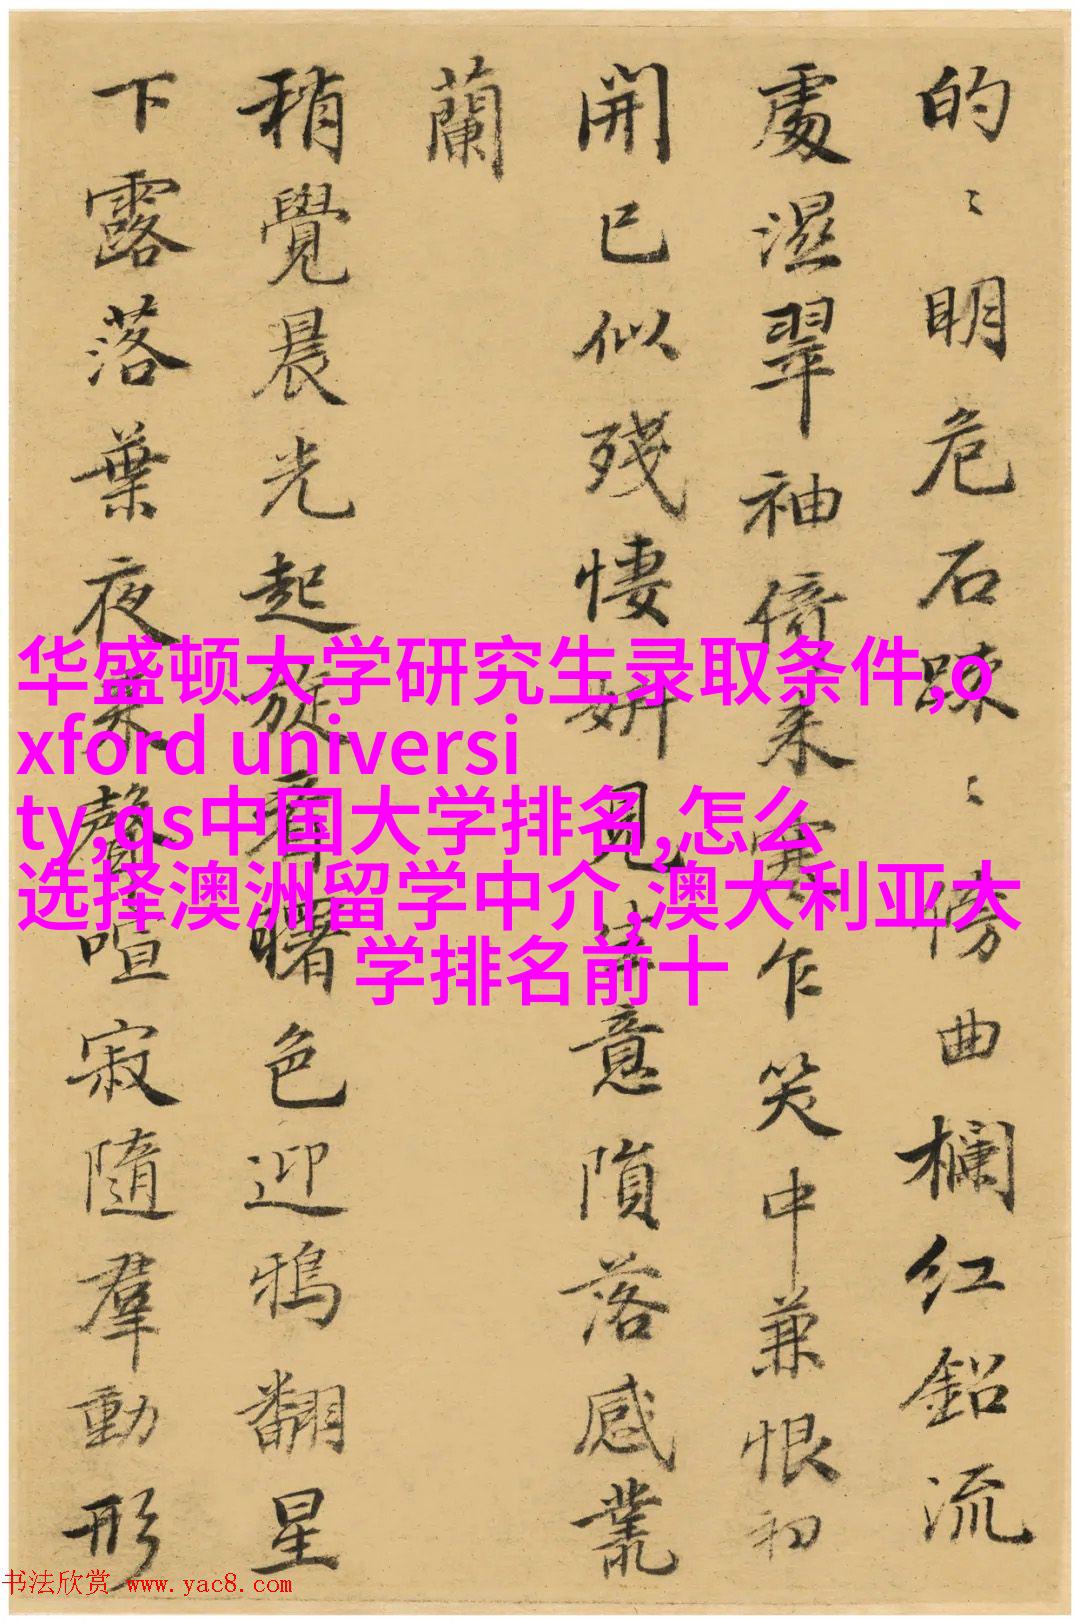 的〻明危石疎〻傍曲欄红鉛流
處濕翠袖倚来寒乍笑中兼恨初
開已似殘悽妍見生意隕落感叢
蘭
稍覺晨光起旋看曙色迎鴉翻星
下露落葉夜来聲喧寂隨羣動形
华盛顿大学研究生录取条件,o
xford universi
ty,qs中国大学排名,怎么
选择澳洲留学中介,澳大利亚大
学排名前十
书法欣赏 www.yac8.com